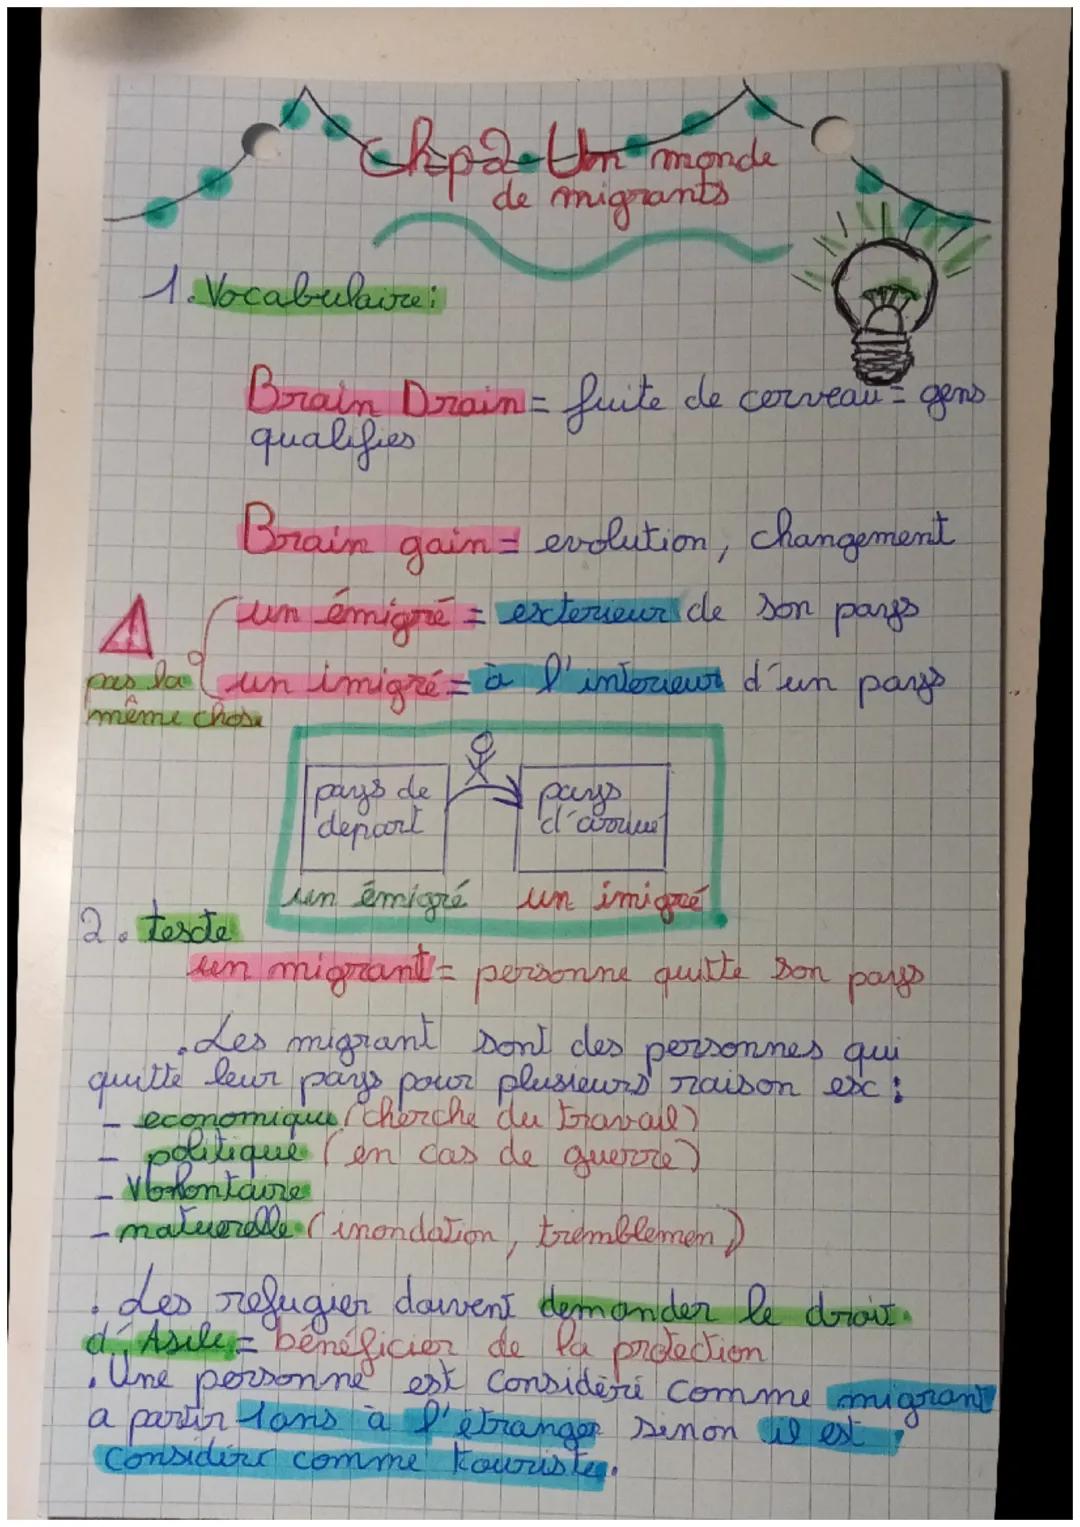 Chp2. Un monde
de migrants
1. Vocabulaire:
Brain Drain = fuite de cerveau = gens
qualifies
Brain gain = evolution, changement
un émigré = exterieur de son pays
pas la
même chose
un imigré = à l'interieur d'un pays
pays de
depart
pays
d'arrivé
un émigré un imigré
2. texte
un migrant = personne quitte son pays
. Les migrant sont des personnes qui
quitte leur pays pour plusieurs raison ex :
- economique (cherche du travail)
- politique (en cas de guerre)
- Volontaire
- naturelle (inondation, tremblemen,)
. Les refugier doivent demander le droit
d'Asile = bénéficier de la protection
. Une personne est considéré comme migrant
a partir 1ans à l'étranger sinon il est
considére comme touriste.